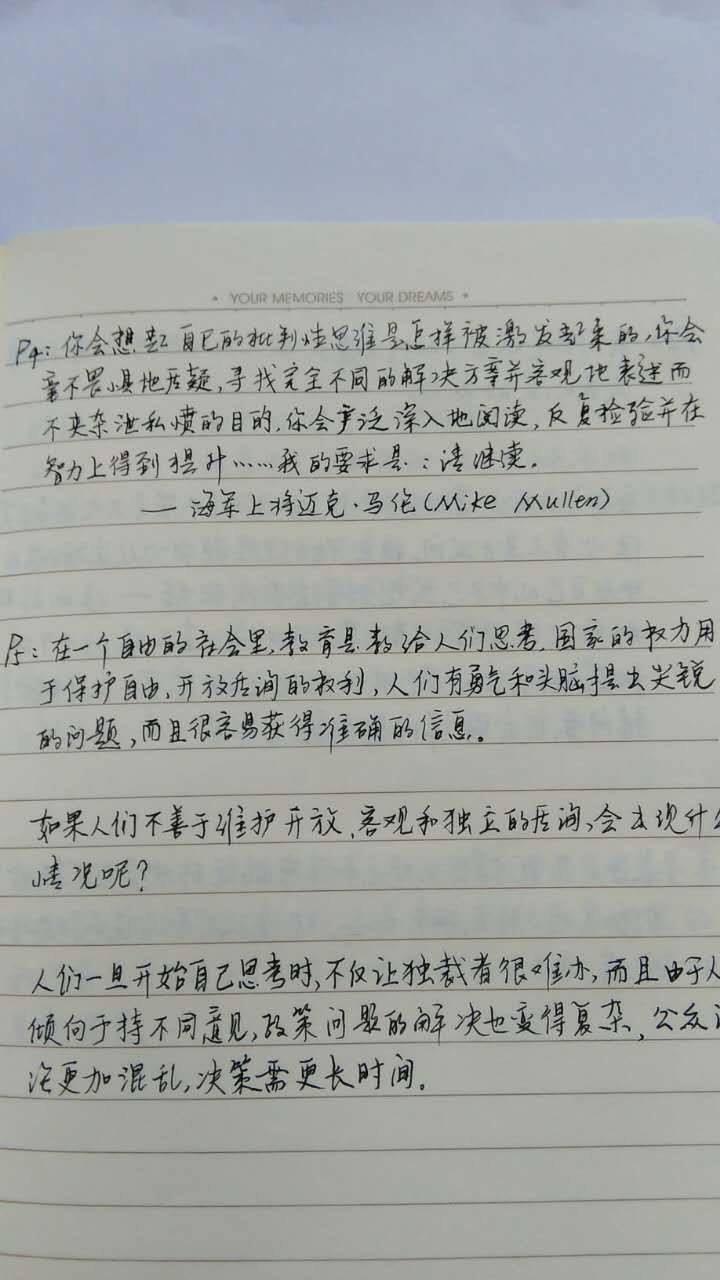 • YOUR MEMORIES YOUR DREAMS •
P4：你会想起自己的批判性思维是怎样被激发起来的，你会
毫不畏惧地质疑，寻找完全不同的解决方案并客观地表述而
不夹杂泄私愤的目的，你会广泛深入地阅读，反复检验并在
智力上得到提升……我的要求是：请继续。
— 海军上将迈克·马伦（Mike Mullen）
P5：在一个自由的社会里，教育是教给人们思考，国家的权力用
于保护自由、开放质询的权利，人们有勇气和头脑提出尖锐
的问题，而且很容易获得准确的信息。
如果人们不善于维护开放、客观和独立的质询，会出现什么
情况呢？
人们一旦开始自己思考时，不仅让独裁者很难办，而且由于人
倾向于持不同意见，政策问题的解决也变得复杂，公众讨
论更加混乱，决策需更长时间。